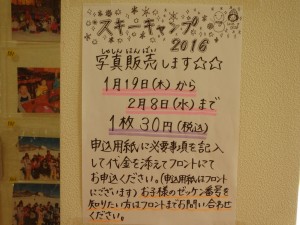 スキーキャンプ
2016
しゃしんはんばい
写真販売します☆☆
1月19日(木)から
2月8日(水)まで
1枚30円(税込)
申込用紙に必要事項を記入
して代金を添えてフロントにて
お申込ください。(申込用紙はフロント
にございます)お子様のゼッケン番号を
知りたい方はフロントまでお問い合わせ
ください。